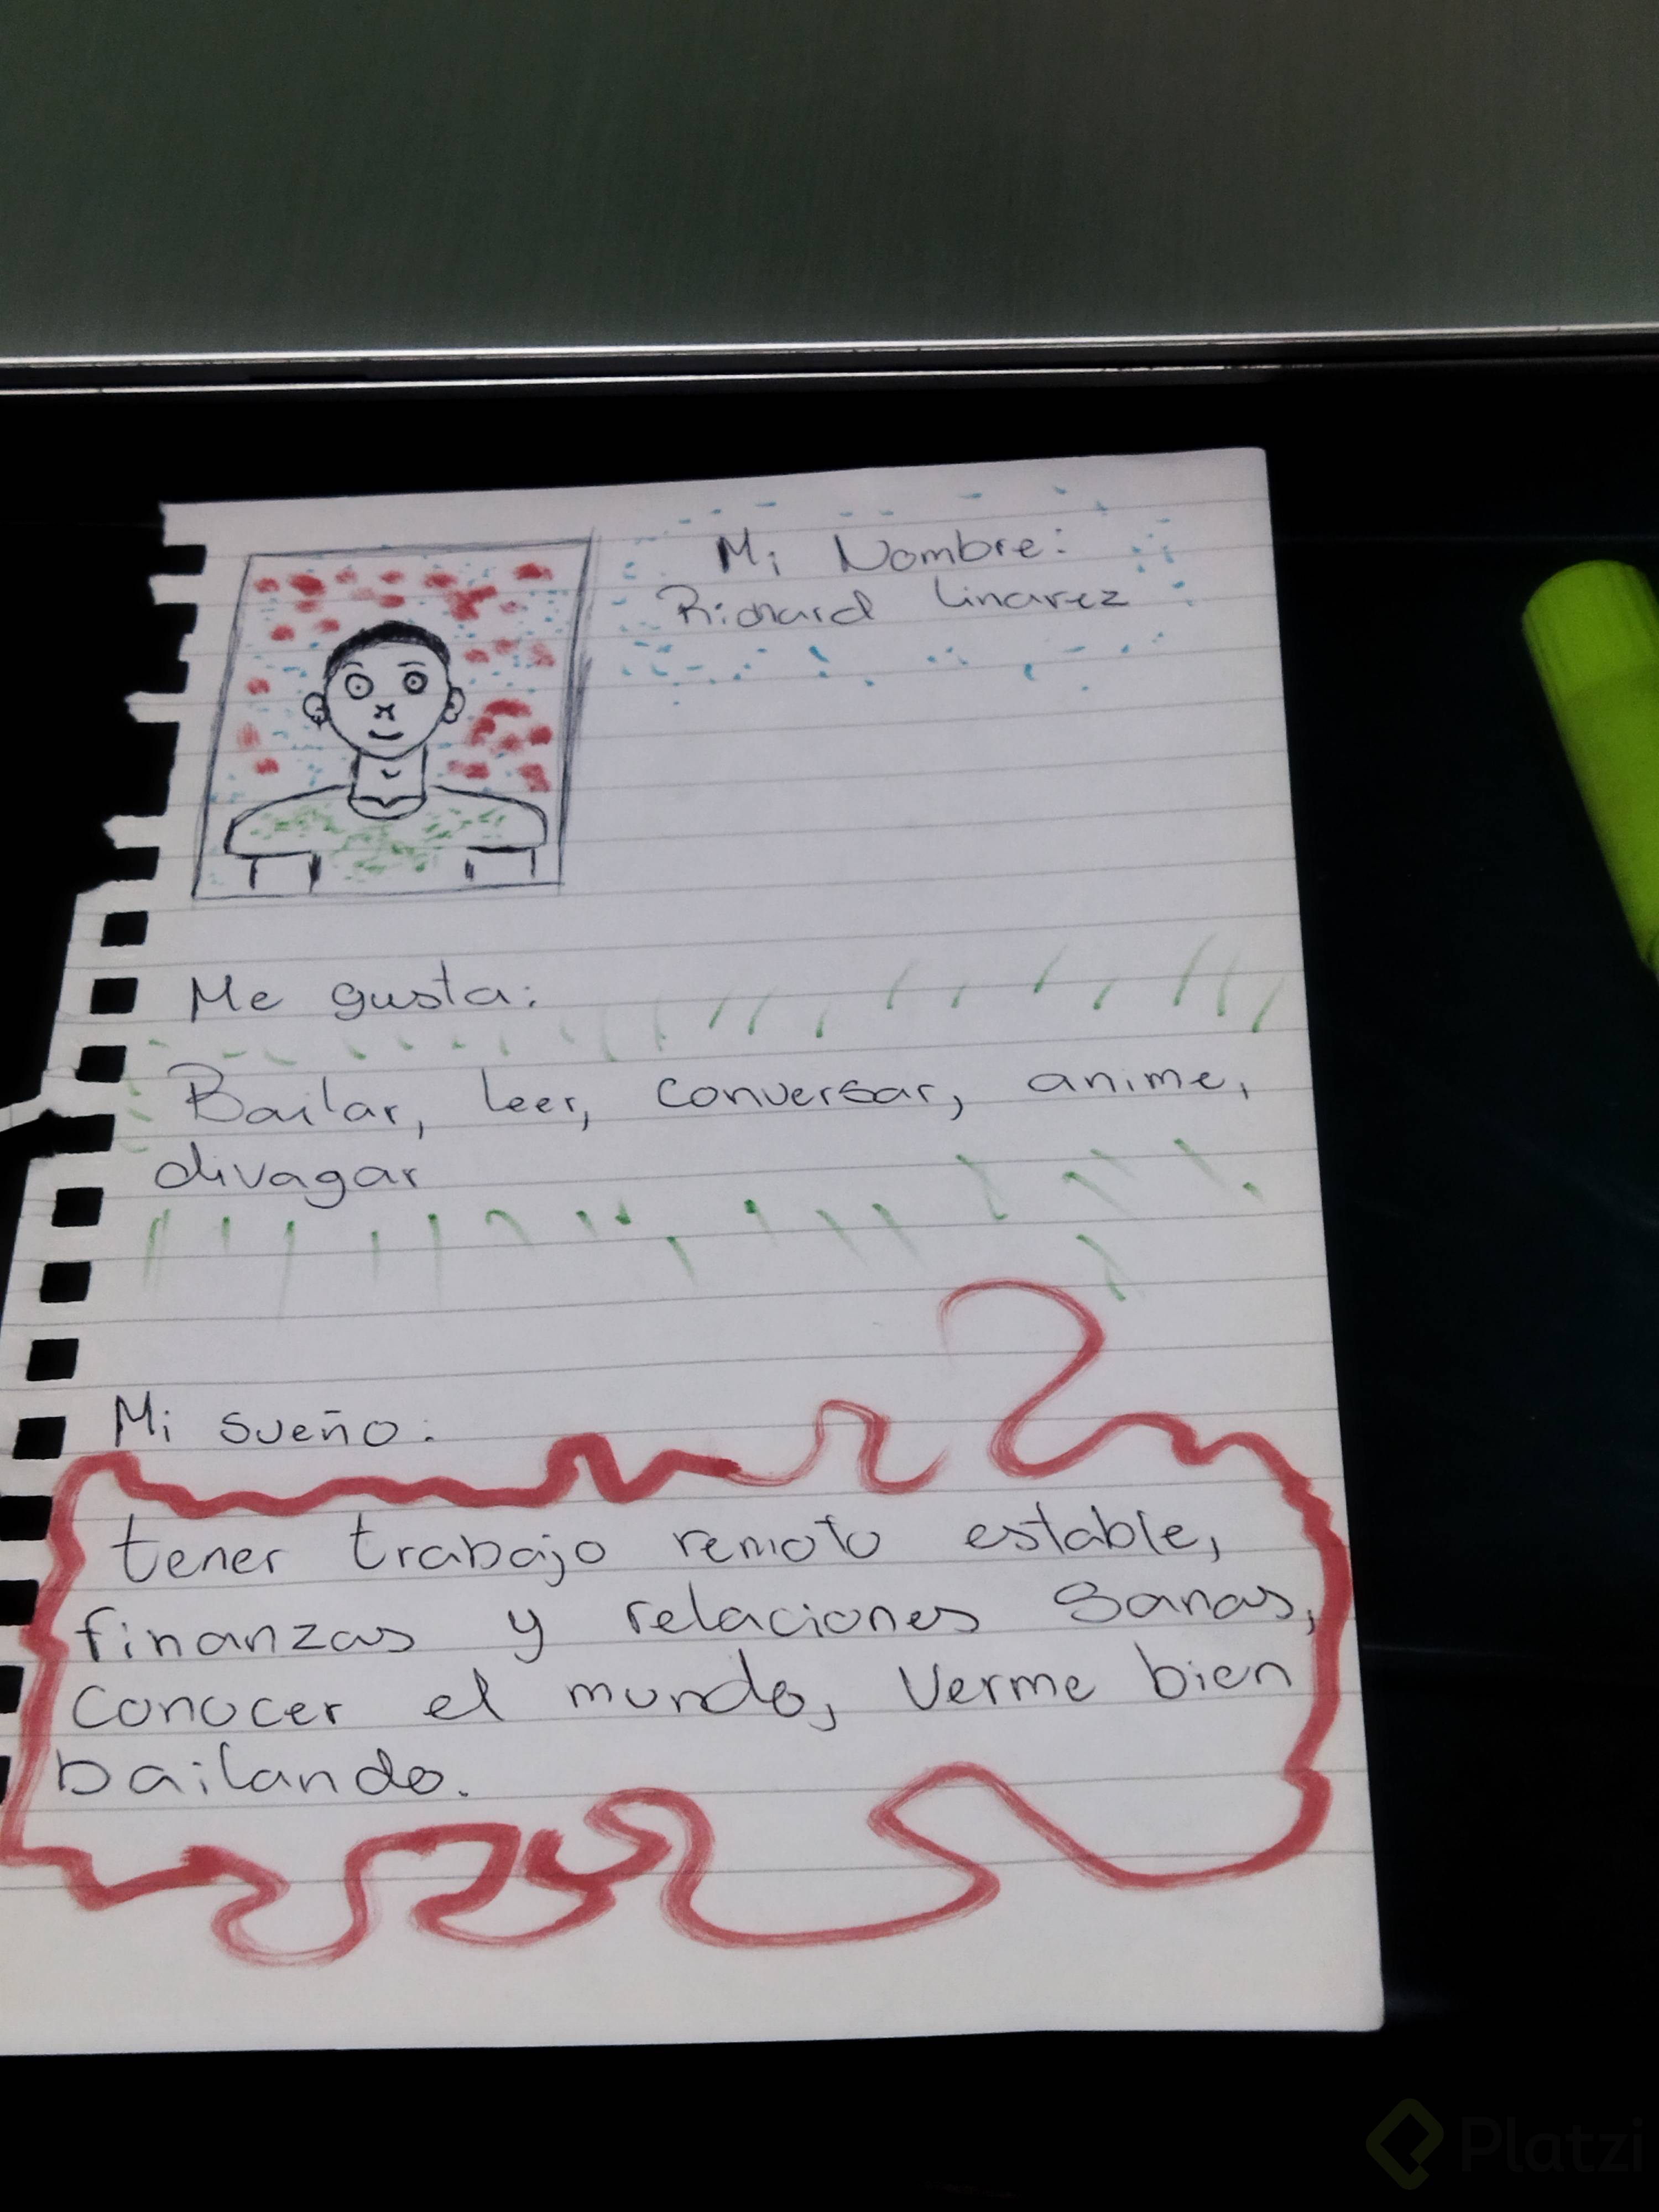 Mi Nombre:
Richard Linarez
Me gusta:
Bailar, leer, conversar, anime,
divagar
Mi sueño:
tener trabajo remoto estable,
finanzas y relaciones sanas,
conocer el mundo, verme bien
bailando.
Platzi